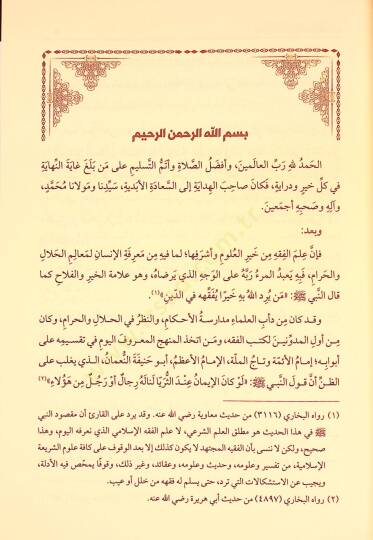 بسم الله الرحمن الرحيم
الحَمدُ للهِ رَبِّ العالَمينَ، وأفضَلُ الصَّلاةِ وأتَمُّ التَّسليمِ على مَن بَلَغَ غايَةَ النِّهايَةِ
في كلِّ خيرٍ ودرايةٍ، فَكانَ صاحِبَ الهِدايَةِ إلى السَّعادَةِ الأبَديةِ، سَيِّدِنا ومَولانا مُحَمَّدٍ،
وآلِهِ وصَحبِهِ أجمَعينَ.
وبعد:
فإنَّ عِلمَ الفِقهِ مِن خَيرِ العُلومِ وأشرَفِها؛ لما فيهِ مِن مَعرِفَةِ الإنسانِ لمَعالِمِ الحَلالِ
والحَرامِ، فَبِهِ يَعبدُ المرءُ رَبَّهُ على الوَجهِ الذي يَرضاهُ، وهو علامة الخيرِ والفلاحِ كما
قال النَّبي ﷺ: «مَن يُرِد اللهُ بِهِ خَيرًا يُفَقِّههُ في الدِّينِ»(١).
وقد كان مِن دَأبِ العلماءِ مدارسةُ الأحكامِ، والنظرُ في الحلالِ والحرامِ، وكان
مِن أولِ المدوِّنينَ لكتبِ الفقه، ومَن اتخذَ المنهجَ المعروفَ اليومَ في تقسيمِهِ على
أبوابِه؛ إمامُ الأئمّةِ وتاجُ الملّة، الإمامُ الأعظمُ، أبو حَنيفَةَ النُّعمانُ، الذي يغلب على
الظنِّ أنَّ قولَ النَّبي ﷺ: «لَو كانَ الإيمانُ عِندَ الثُّرَيّا لَنالَهُ رِجالٌ أو رَجُلٌ مِن هَؤُلاءِ»(٢)
(١) رواه البخاري (٣١١٦) من حديث معاوية رضي الله عنه. وقد يرد على القارئ أن مقصود النبي
ﷺ في هذا الحديث هو مطلق العلم الشرعي، لا علم الفقه الإسلامي الذي نعرفه اليوم، وهذا
صحيح، ولكن لا ننسى بأن الفقيه المجتهد لا يكون كذلك إلا بعد الوقوف على كافة علوم الشريعة
الإسلامية، من تفسير وعلومه، وحديث وعلومه، وعقائد، وغير ذلك، وقوفًا يمحّص فيه الأدلة،
ويجيب عن الاستشكالات التي ترد، حتى يسلم له فقهه من خلل أو عيب.
(٢) رواه البخاري (٤٨٩٧) من حديث أبي هريرة رضي الله عنه.